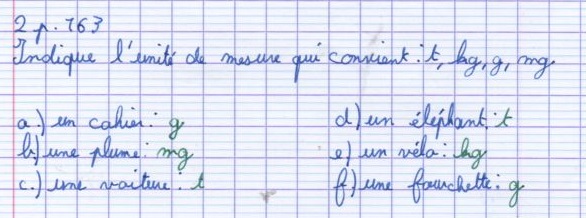 2 p. 163
Indique l'unité de mesure qui convient : t, kg, g, mg
a.) un cahier : g
d) un éléphant : t
b) une plume : mg
e) un vélo : kg
c.) une voiture : t
f) une fourchette : g